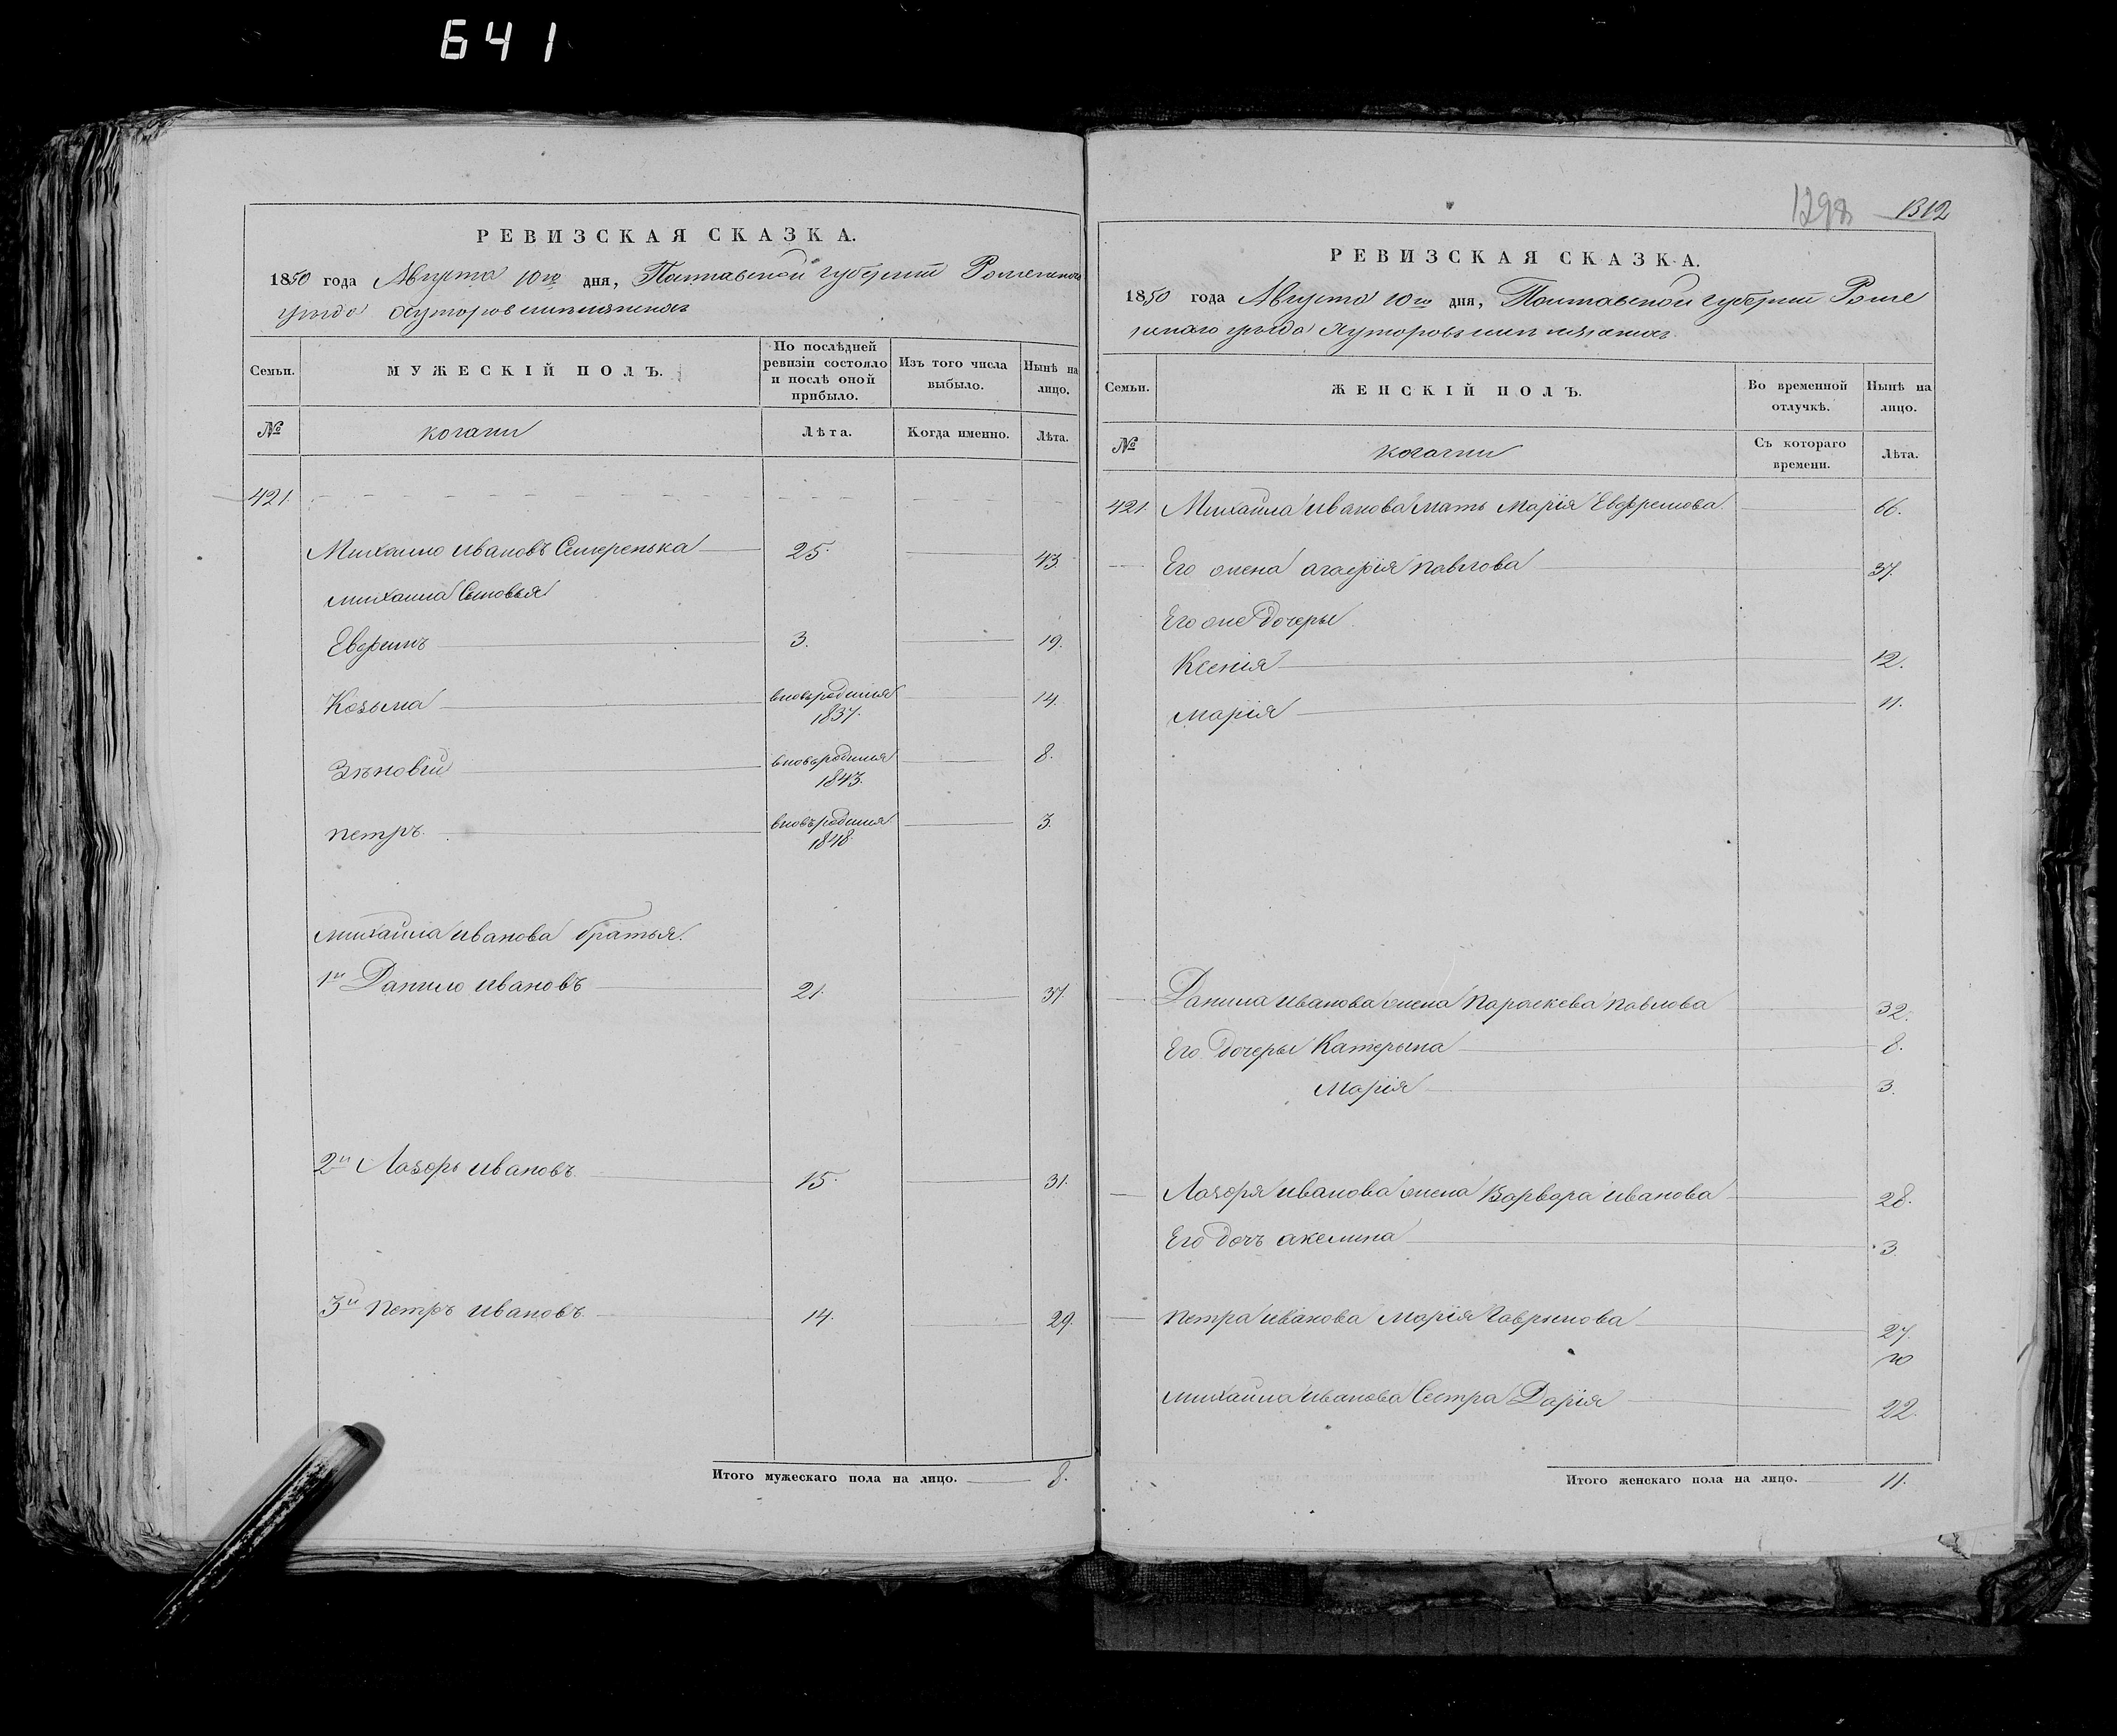 641
РЕВИЗСКАЯ СКАЗКА.
1850 года Августа 10го дня, Полтавской губернии Роменскаго
уезда Хуторов
Семьи.
МУЖЕСКІЙ ПОЛЪ.
По послѣдней ревизіи состояло и послѣ оной прибыло.
Изъ того числа выбыло.
Нынѣ на лицо.
№
козаки
Лѣта.
Когда именно.
Лѣта.
421.
Михайло Ивановъ Семеренька 25. 43.
Михаила Сыновья
Евфимъ 3. 19.
Козьма вновьродился 1837. 14.
Зѣновій вновьродился 1843. 8.
Петръ вновьродился 1848. 3.
Михайла Иванова братья.
1й Данило Ивановъ 21. 37.
2й Лазорь Ивановъ 15. 31.
3й Петръ Ивановъ 14. 29.
Итого мужескаго пола на лицо. 8.
1298 1312
РЕВИЗСКАЯ СКАЗКА.
1850 года Августа 10го дня, Полтавской губернии Роме
нскаго уезда Хуторовъ
Семьи.
ЖЕНСКІЙ ПОЛЪ.
Во временной отлучкѣ.
Нынѣ на лицо.
№
козачки
Съ котораго времени.
Лѣта.
421. Михайла Иванова Мать Марія Евфремова 66.
Его жена Агафія Павлова 37.
Его же Дочеры
Ксенія 12.
Марія 11.
Данила Иванова жена Параскева Павлова 32.
Его дочеры Катерына 8.
Марія 3.
Лазоря Иванова жена Варвара Иванова 28.
Его дочь Акелина 3.
Петра Иванова Марія Гаврылова 27.
10
Михайла Иванова Сестра Дарія 22.
Итого женскаго пола на лицо. 11.